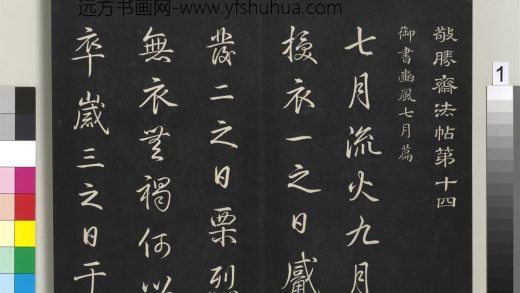 远方书画网-www.yfshuhua.com
敬勝齋法帖第十四
御書豳風七月篇
七月流火九月
授衣一之日觱
發二之日栗烈
無衣無褐何以
卒歲三之日于
1